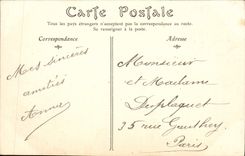 Carte Postale
Tous les pays étrangers n'acceptent pas la correspondance au recto.
Se renseigner à la poste.
Correspondance
Adresse
Mes sincères
amitiés
Anna
Monsieur
et Madame
Duplaquet
35 rue Gauthey
Paris